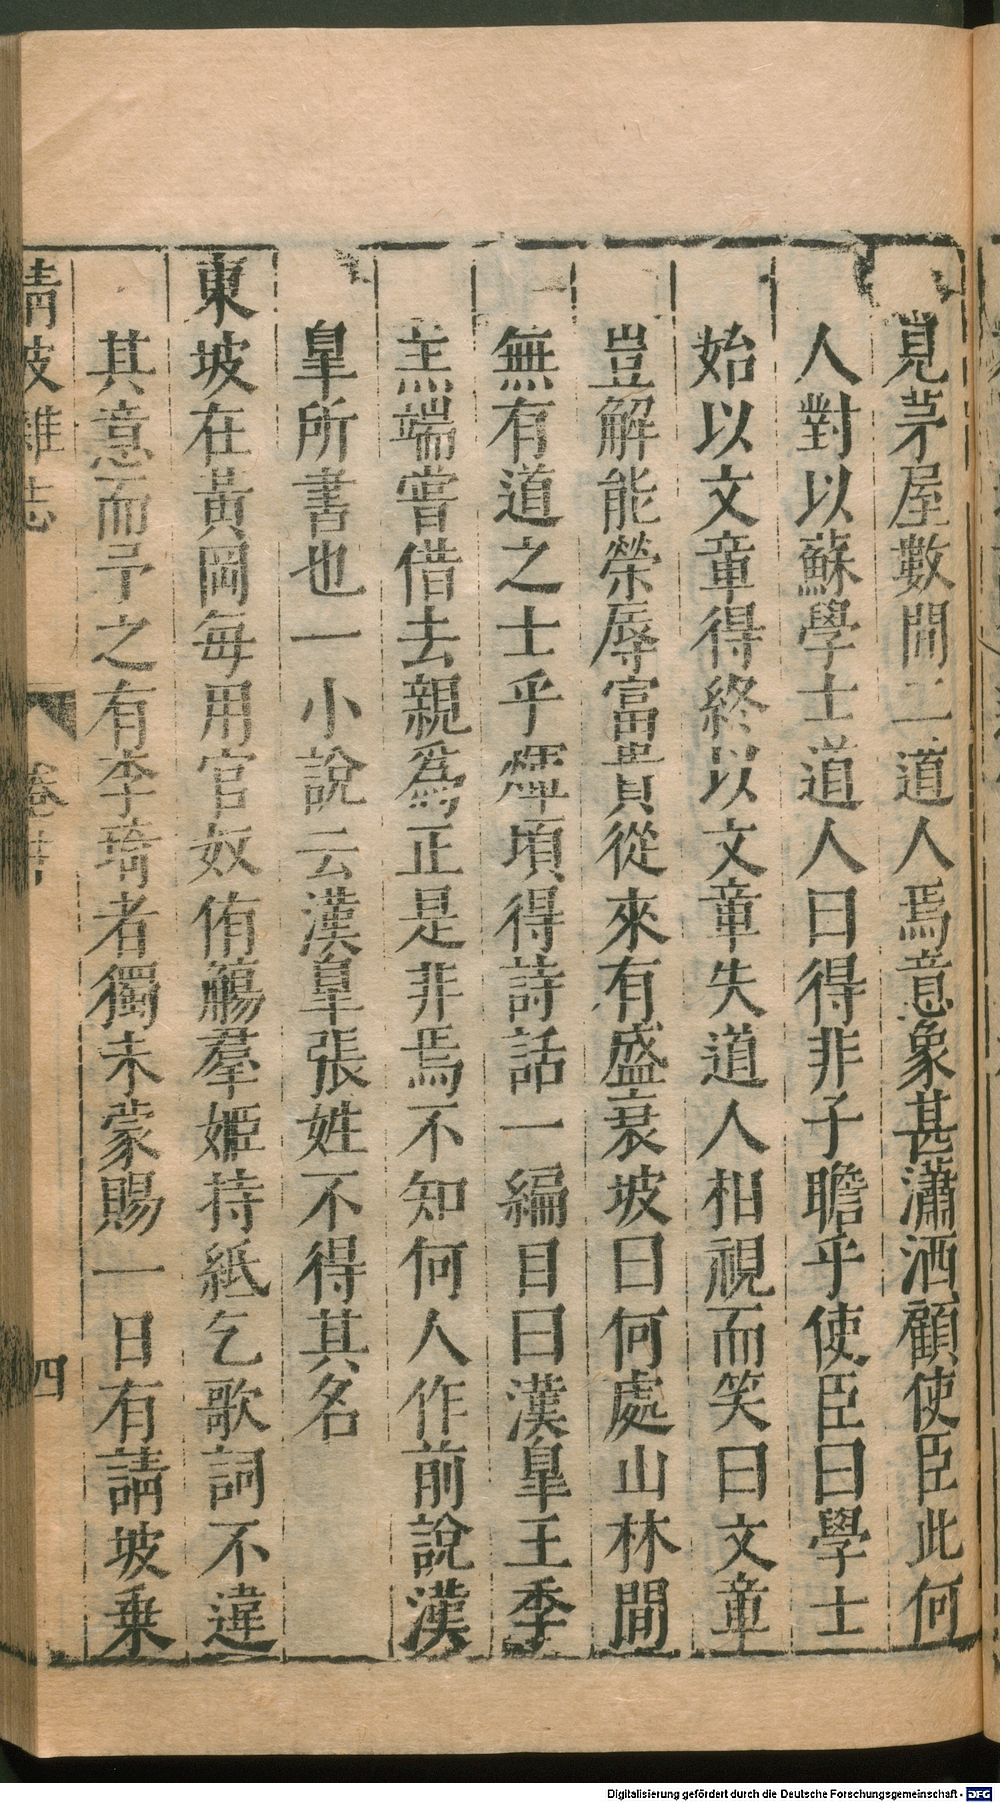 見茅屋數間二道人焉意象甚瀟洒顧使臣此何
人對以蘇學士道人曰得非子瞻乎使臣曰學士
始以文章得終以文章失道人相視而笑曰文章
豈解能榮辱富貴從來有盛衰坡曰何處山林間
無有道之士乎煇頃得詩話一編目曰漢皐王季
羔端嘗借去親爲正是非焉不知何人作前說漢
皐所書也一小說云漢皐張姓不得其名
東坡在黃岡每用官奴侑觴羣姬持紙乞歌詞不違
其意而予之有李琦者獨未蒙賜一日有請坡乗
清波雜志 卷 四
Digitalisierung gefördert durch die Deutsche Forschungsgemeinschaft - DFG